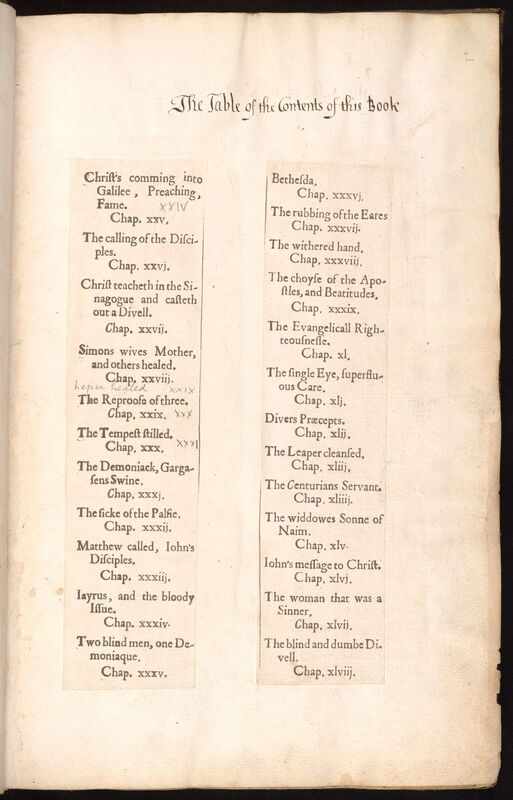 2
The Table of the Contents of this Book
Chriſt's comming into
Galilee, Preaching,
Fame. XXIV
Chap. xxv.
The calling of the Diſci-
ples.
Chap. xxvj.
Chriſt teacheth in the Si-
nagogue and caſteth
out a Divell.
Chap. xxvij.
Simons wives Mother,
and others healed.
Chap. xxviij.
leper healed XXIX
The Reprooſe of three.
Chap. xxix. XXX
The Tempeſt ſtilled.
Chap. xxx. XXXI
The Demoniack, Garga-
ſens Swine.
Chap. xxxj.
The ſicke of the Palſie.
Chap. xxxij.
Matthew called, Iohn's
Diſciples.
Chap. xxxiij.
Iayrus, and the bloody
Iſſue.
Chap. xxxiv.
Two blind men, one De-
moniaque.
Chap. xxxv.
Betheſda.
Chap. xxxvj.
The rubbing of the Eares
Chap. xxxvij.
The withered hand.
Chap. xxxviij.
The choyſe of the Apo-
ſtles, and Beatitudes.
Chap. xxxix.
The Evangelicall Righ-
teouſneſſe.
Chap. xl.
The ſingle Eye, ſuperflu-
ous Care.
Chap. xlj.
Divers Præcepts.
Chap. xlij.
The Leaper cleanſed.
Chap. xliij.
The Centurians Servant.
Chap. xliiij.
The widdowes Sonne of
Naim.
Chap. xlv.
Iohn's meſſage to Chriſt.
Chap. xlvj.
The woman that was a
Sinner.
Chap. xlvij.
The blind and dumbe Di-
vell.
Chap. xlviij.